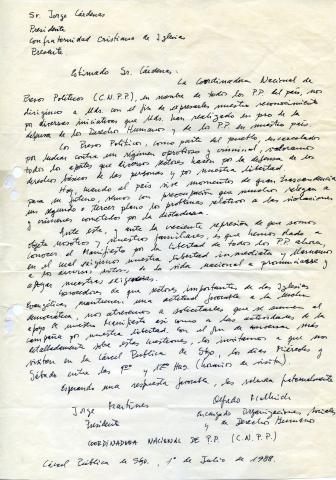 Sr. Jorge Cárdenas
Presidente
Confraternidad Cristiana de Iglesias
Presente
Estimado Sr. Cárdenas.
La Coordinadora Nacional de
Presos Políticos (C.N.P.P.), en nombre de todos los P.P. del país, nos
dirigimos a Uds. con el fin de expresarles nuestro reconocimiento
por diversas iniciativas que Uds. han realizado en pro de la
defensa de los Derechos Humanos y de los P.P. en nuestro país.
Los Presos Políticos, como parte del pueblo, encarcelados
por luchar contra un régimen opresivo y criminal, valoramos
todos los aportes que diversos sectores hacen por la defensa de los
derechos básicos de las personas y por nuestra libertad.
Hoy, cuando el país vive momentos de gran trascendencia
para su futuro, vemos con preocupación que muchos relegan a
un segundo o tercer plano los problemas relativos a las violaciones
y crímenes cometidos por la dictadura.
Ante esto, y ante la creciente represión de que somos
objeto nosotros y nuestros familiares, es que hemos dado a
conocer el Manifiesto por la Libertad de todos los P.P. ahora,
en el cual exigimos nuestra libertad inmediata y llamamos
a los diversos sectores de la vida nacional a pronunciarse y
apoyar nuestras exigencias.
Conocedores de que sectores importantes de las Iglesias
Evangélicas, mantienen una actitud favorable a la lucha
democrática, nos atrevemos a solicitarles que se sumen al
apoyo de nuestro Manifiesto así como a las actividades de la
campaña por nuestra libertad. Con el fin de conversar más
detalladamente sobre estas cuestiones, les invitamos a que nos
visiten en la Cárcel Pública de Stgo, los días Miércoles y
Sábado entre las y Hrs. (horarios de visita).
Esperando una respuesta favorable, les saludan fraternalmente
Jorge Martínez
Presidente
Alfredo
encargado Organizaciones Sociales
y de Derechos Humanos
COORDINADORA NACIONAL DE P.P. (C.N.P.P.)
Cárcel Pública de Stgo, 1º de Julio de 1988.